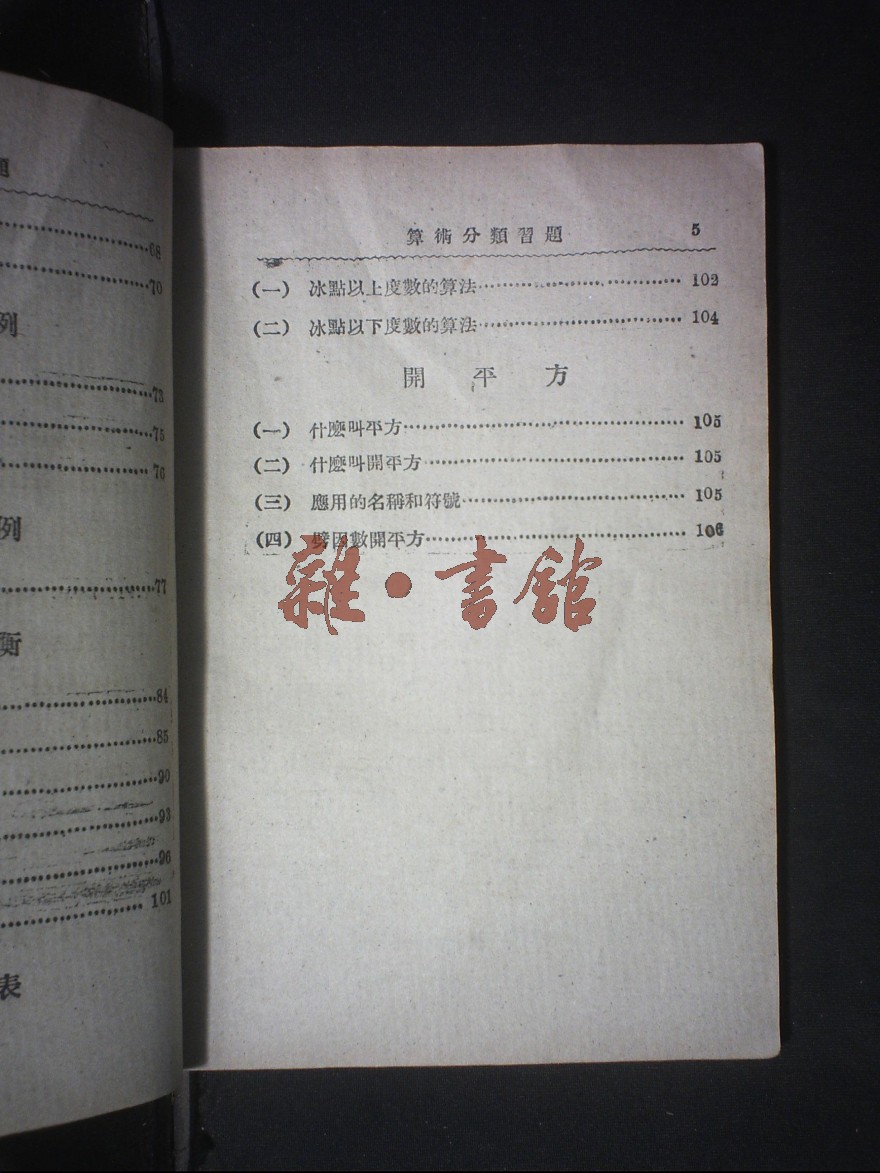 題
68
70
列
73
75
76
列
77
衡
84
85
90
93
96
101
表
算術分類習題 5
(一) 冰點以上度數的算法 102
(二) 冰點以下度數的算法 104
開平方
(一) 什麼叫平方 105
(二) 什麼叫開平方 105
(三) 應用的名稱和符號 105
(四) 劈因數開平方 106
雜·書館